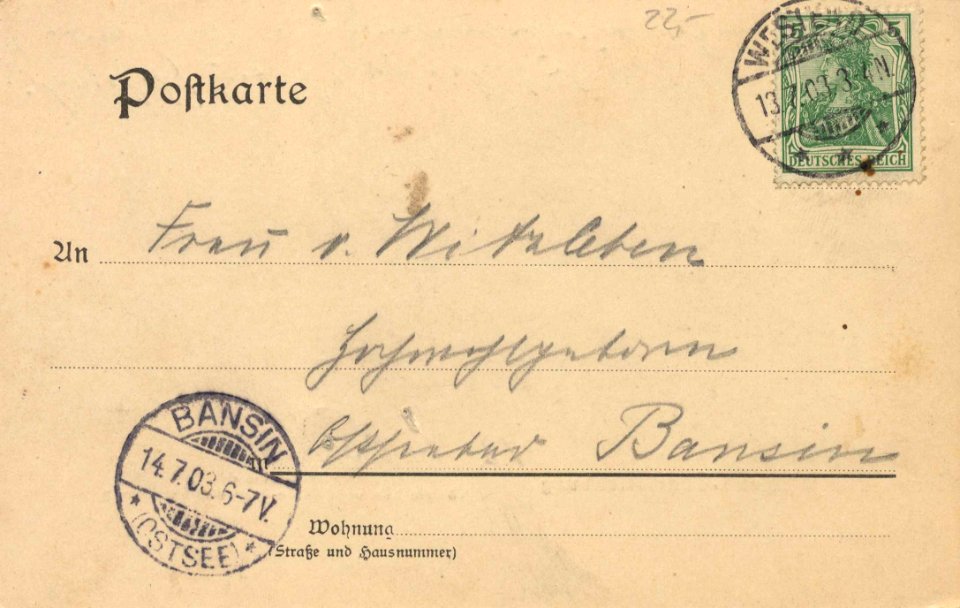 22,-
5
13.7.03.3-4N.
DEUTSCHES REICH
Postkarte
An Frau v. Witzleben
Hochwohlgeboren
Ostseebad Bansin
BANSIN
14.7.03.6-7V.
(OSTSEE)
Wohnung
(Straße und Hausnummer)